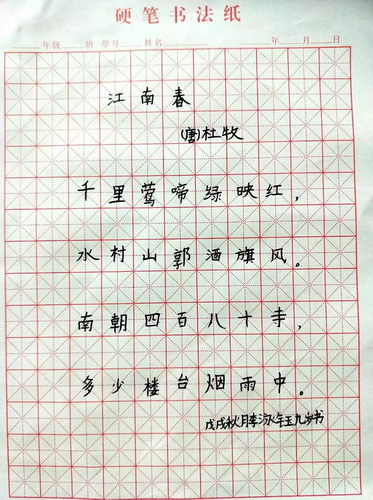 硬笔书法纸
年级 班 学号 姓名 年 月 日
江南春
(唐)杜牧
千里莺啼绿映红，
水村山郭酒旗风。
南朝四百八十寺，
多少楼台烟雨中。
戊戌秋月李泳钰九岁书